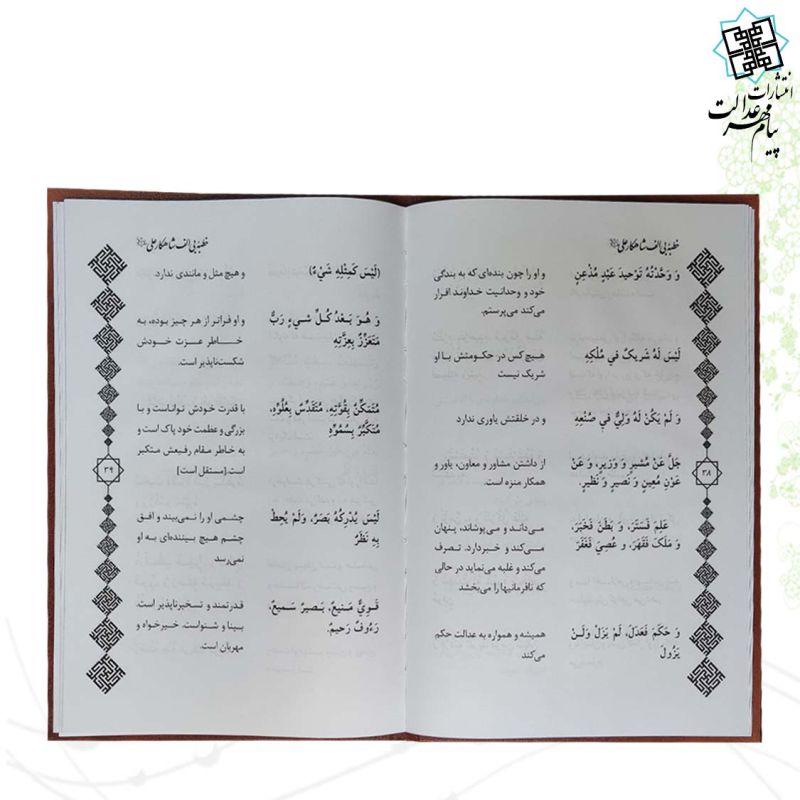 انتشارات
پیام مهر عدالت
خطبه بی الف شاهکار علی
وَ وَحَّدْتُهُ تَوْحیدَ عَبْدٍ مُذْعِنٍ
و او را چون بنده‌ای که به بندگی
خود و وحدانیت خداوند اقرار
می‌کند می‌پرستم.
لَیْسَ لَهُ شَریکٌ في مُلْکِهِ
هیچ کس در حکومتش با او
شریک نیست
وَ لَمْ یَکُنْ لَهُ وَلِيٌّ في صُنْعِهِ
و در خلقتش یاوری ندارد
جَلَّ عَنْ مُشیرٍ وَ وَزیرٍ، وَ عَنْ
عَوْنِ مُعینٍ وَ نَصیرٍ وَ نَظیرٍ.
از داشتن مشاور و معاون، یاور و
همکار منزه است.
۳۸
عَلِمَ فَسَتَرَ، وَ بَطَنَ فَخَبَرَ،
وَ مَلَکَ فَقَهَرَ، و عُصِيَ فَغَفَرَ
می‌داند و می‌پوشاند، پنهان
می‌کند و خبردارد. تصرف
می‌کند و غلبه می‌نماید در حالی
که نافرمانیها را می‌بخشد
وَ حَکَمَ فَعَدَلَ، لَمْ یَزَلْ وَلَنْ
یَزُولَ
همیشه و همواره به عدالت حکم
می‌کند
خطبه بی الف شاهکار علی
(لَیْسَ کَمِثْلِهِ شَيْءٌ)
و هیچ مثل و مانندی ندارد.
وَ هُوَ بَعْدُ کُلِّ شيءٍ رَبٌّ
مُتَعَزِّزٌ بِعِزَّتِهِ
و او فراتر از هر چیز بوده، به
خاطر عزت خودش
شکست‌ناپذیر است.
مُتَمَکِّنٌ بِقُوَّتِهِ، مُتَقَدِّسٌ بِعُلُوِّهِ،
مُتَکَبِّرٌ بِسُمُوِّهِ
با قدرت خودش تواناست و با
بزرگی و عظمت خود پاک است و
به خاطر مقام رفیعش متکبر
است [مستقل است]
۳۹
لَیْسَ یُدْرِکُهُ بَصَرٌ، وَلَمْ یُحِطْ
بِهِ نَظَرٌ
چشمی او را نمی‌بیند و افق
چشم هیچ بیننده‌ای به او
نمی‌رسد
قَوِيٌّ مَنیعٌ، بَصیرٌ سَمیعٌ،
رَءُوفٌ رَحیمٌ.
قدرتمند و تسخیرناپذیر است.
بینا و شنواست. خیرخواه و
مهربان است.